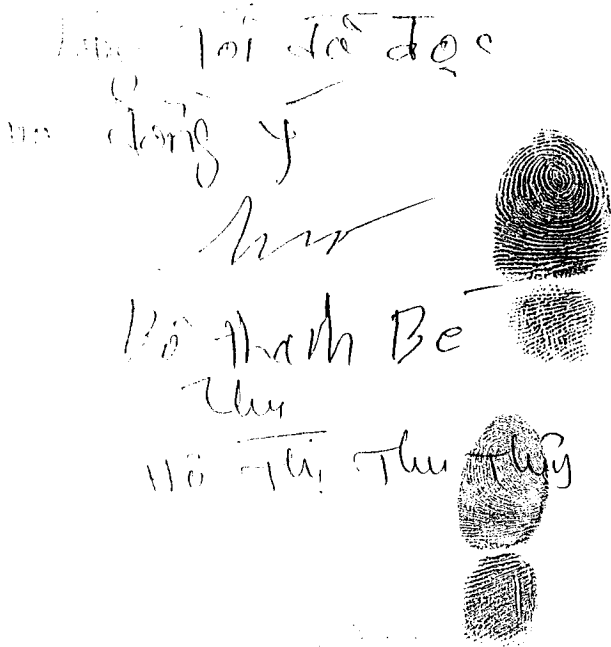 Tôi đã đọc
đồng ý
Thanh Bé
Thu
Thị Thu Thủy